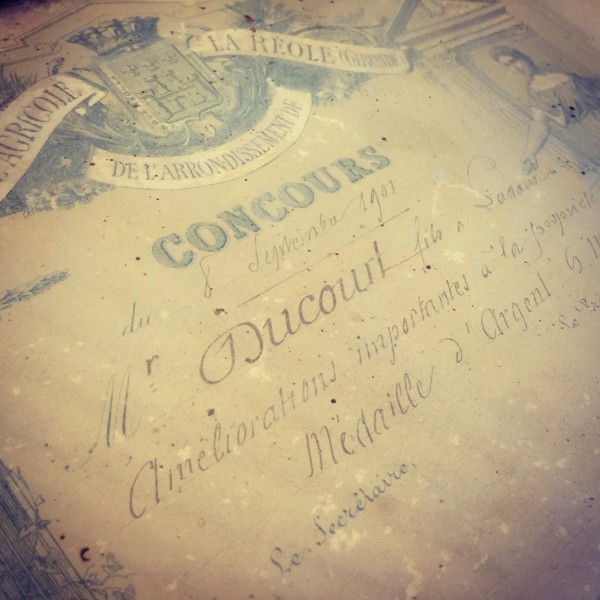 AGRICOLE
LA RÉOLE (GIRONDE)
DE L'ARRONDISSEMENT DE
CONCOURS
du 8 Septembre 1901
Mr Ducourt fils à
Améliorations importantes à la propriété
Médaille d'Argent G M
Le Secrétaire,